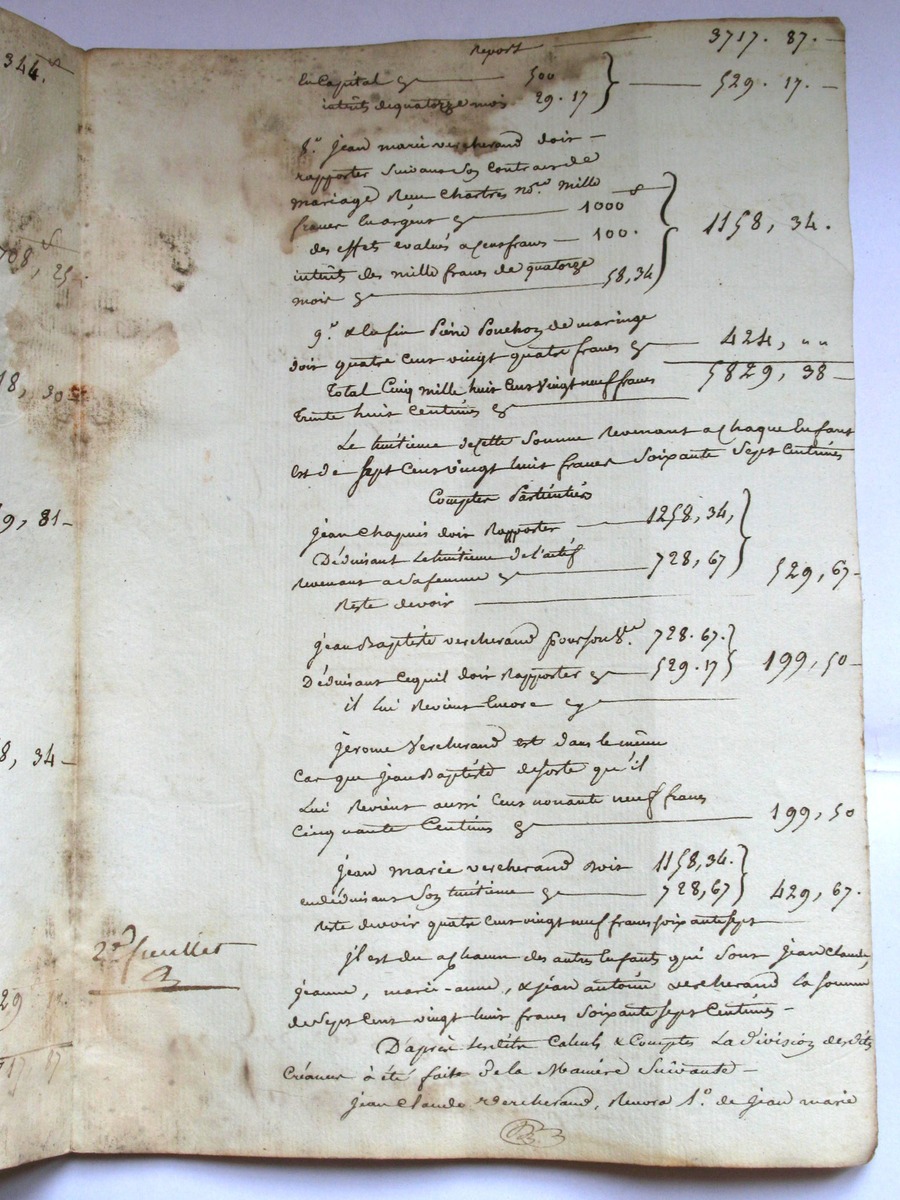 344.
708, 25.
18, 30
9, 81
8, 34
29 17
717, 17
2.e feuillet
Report 3717. 87.
en Capital 500
intérêts de quatorze mois 29. 17 529. 17.
8.o jean marie vercherand doit
rapporter suivant son contrat de
mariage Reçu Chartres no.re mille
francs en argent 1000
des effets evalués a cent francs 100.
intérêts des mille francs de quatorze
mois 58,34 1158, 34.
9.o & enfin Pierre Pouchoz de maringe
doit quatre cent vingt quatre francs 424, " "
Total Cinq mille huit Cent vingt neuf francs 5829, 38
trente huit centimes
Le huitieme de cette somme Revenant a chaque Enfant
est de sept cent vingt huit francs soixante sept centimes
Comptes Particuliers
jean Chapuis doit Rapporter 1258, 34,
Déduisant le huitieme de l'actif
Revenant a sa femme 728, 67
Reste devoir 529, 67
jean Baptiste vercherand pour son 8.me 728. 67.
Déduisant ce quil doit Rapporter 529. 17 199, 50
il lui Revient Encore
jérome Vercherand est dans le même
Cas que jean Baptiste de sorte qu'il
Lui Revient aussi Cent nonante neuf francs
Cinquante Centimes 199, 50
jean marie vercherand doit 1158, 34.
en déduisant son huitieme 728, 67 429, 67.
reste devoir quatre cent vingt neuf francs soixante sept
il est du a chacun des autres Enfants qui sont jean Claude,
jeanne, marie-anne, & jean antoine vercherand la somme
de sept Cent vingt huit francs soixante sept Centimes
D'après lesdits Calculs & Comptes La division desdits
Créances à été faite de la Maniere Suivante
jean Claude Vercherand, Recevra 1.o de jean marie